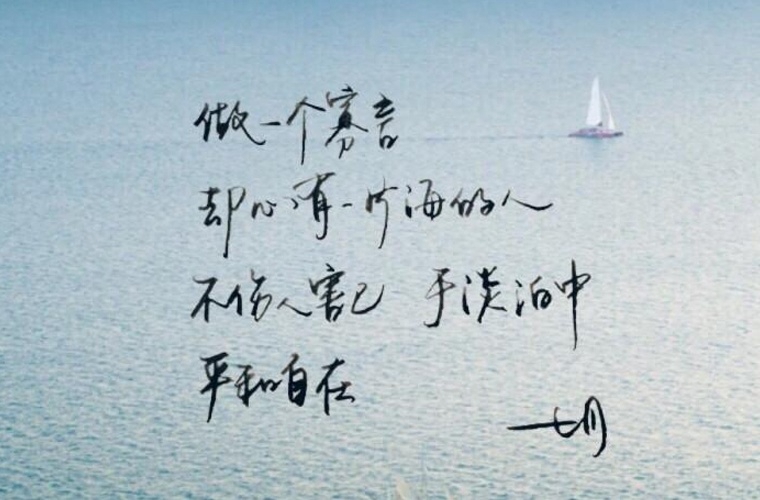 做一个寡言
却心有一片海的人
不伤人害己 于淡泊中
平和自在
—七月